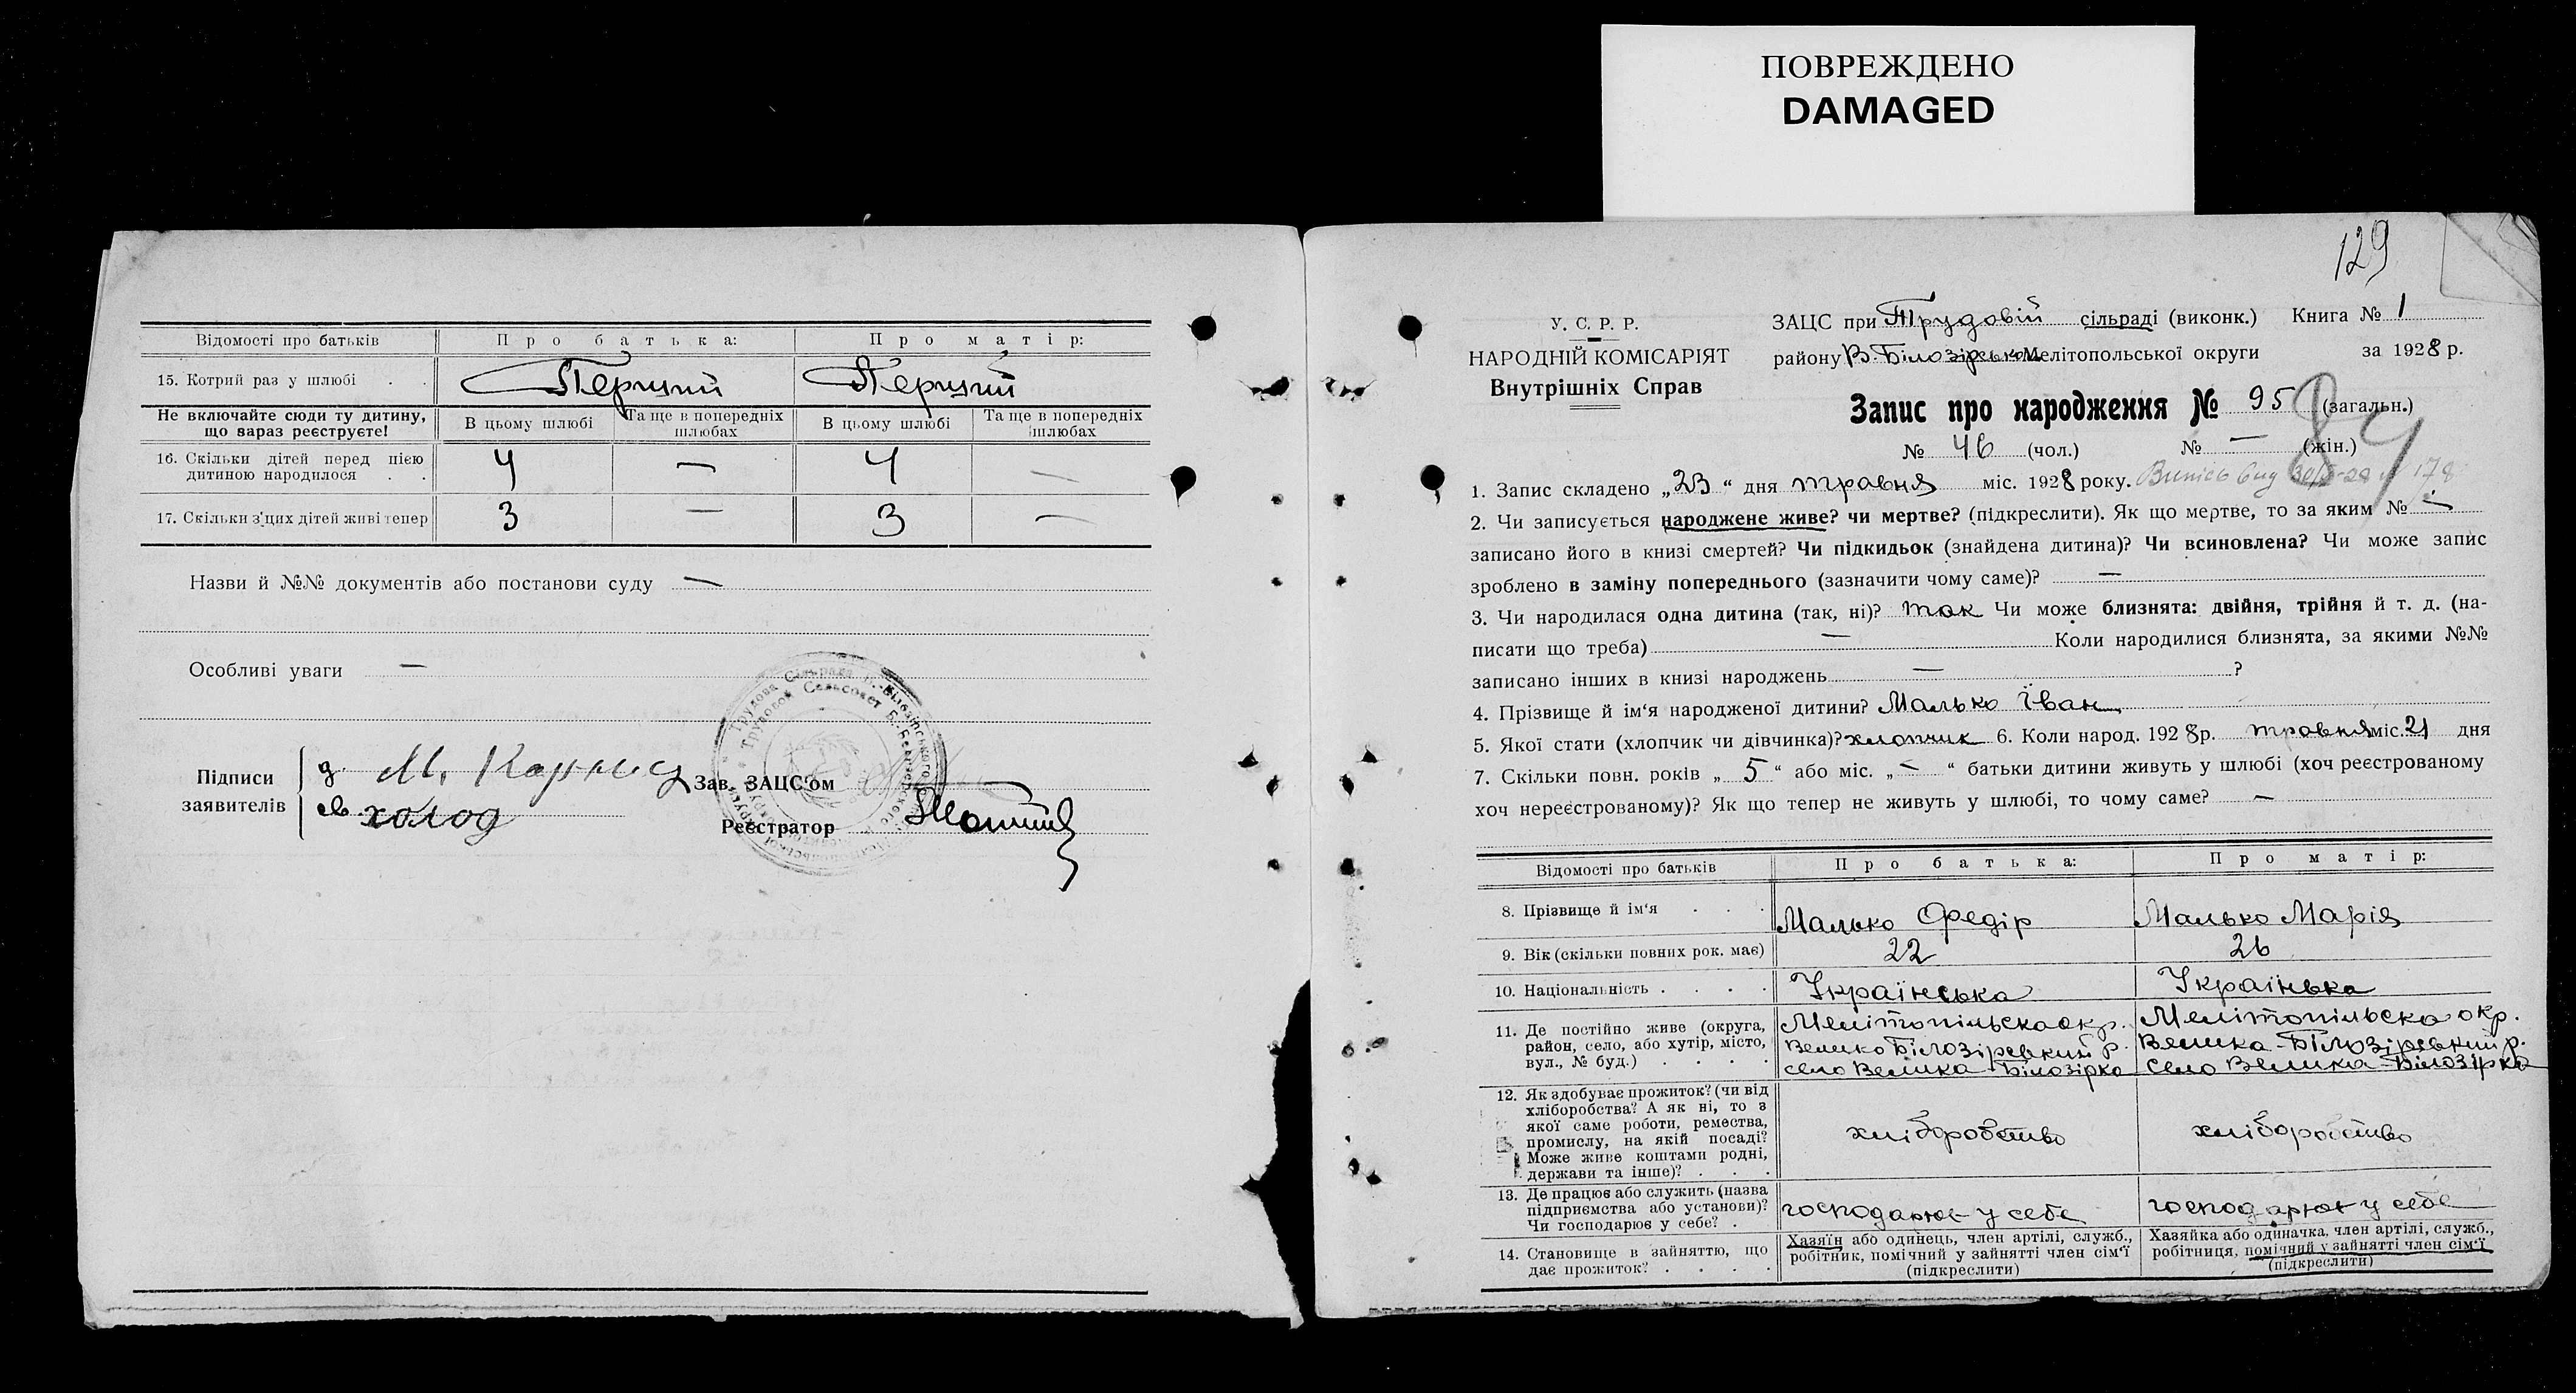 ПОВРЕЖДЕНО
DAMAGED
Відомості про батьків Про батька: Про матір:
15. Котрий раз у шлюбі . . Перший Перший
Не включайте сюди ту дитину, що вараз реєструєте! В цьому шлюбі Та ще в попередніх шлюбах В цьому шлюбі Та ще в попередніх шлюбах
16. Скільки дітей перед цією дитиною народилося . . 4 — 4 —
17. Скільки з'цих дітей живі тепер 3 — 3 —
Назви й №№ документів або постанови суду —
Особливі уваги —
Підписи заявителів
М.
холод
Зав. ЗАЦС'ом
Реєстратор
129
У. С. Р. Р.
НАРОДНІЙ КОМІСАРІЯТ
Внутрішніх Справ
ЗАЦС при Трудовій сільраді (виконк.) Книга № 1
району В. Білозірськ Мелітопольської округи за 1928 р.
Запис про народження № 95 (загальн.)
№ 46 (чол.) № — (жін.)
84
1. Запис складено „23“ дня травня міс. 1928 року.
2. Чи записується народжене живе? чи мертве? (підкреслити). Як що мертве, то за яким № —
записано його в книзі смертей? Чи підкидьок (знайдена дитина)? Чи всиновлена? Чи може запис
зроблено в заміну попереднього (зазначити чому саме)? —
3. Чи народилася одна дитина (так, ні)? так Чи може близнята: двійня, трійня й т. д. (на-
писати що треба) — Коли народилися близнята, за якими №№
записано інших в книзі народжень — ?
4. Прізвище й ім'я народженої дитини? Малько Іван
5. Якої стати (хлопчик чи дівчинка)? хлопчик 6. Коли народ. 1928 р. травня міс. 21 дня
7. Скільки повн. років „5“ або міс. „—“ батьки дитини живуть у шлюбі (хоч реєстрованому
хоч нереєстрованому)? Як що тепер не живуть у шлюбі, то чому саме? —
Відомості про батьків Про батька: Про матір:
8. Прізвище й ім'я . . . Малько Федір Малько Марія
9. Вік (скільки повних рок. має) 22 26
10. Національність . . . . Українська Українька
11. Де постійно живе (округа, район, село, або хутір, місто, вул., № буд.) . . . .
Мелітопільска окр.
Велико Білозірський р.
село Велика-Білозірка
Мелітопільска окр.
Велика-Білозірський р.
село Велика-Білозірка
12. Як здобуває прожиток? (чи від
хліборобства? А як ні, то з
якої саме роботи, ремества,
промислу, на якій посаді?
Може живе коштами родні,
держави та інше)? . . .
хліборобство хліборобство
13. Де працює або служить (назва
підприємства або установи)?
Чи господарює у себе? .
господарює у себе господарює у себе
14. Становище в зайняттю, що
дає прожиток? . . . .
Хазяїн або одинець, член артілі, служб.,
робітник, помічний у зайнятті член сім'ї
(підкреслити)
Хазяйка або одиначка, член артілі, служб.,
робітниця, помічний у зайнятті член сім'ї
(підкреслити)